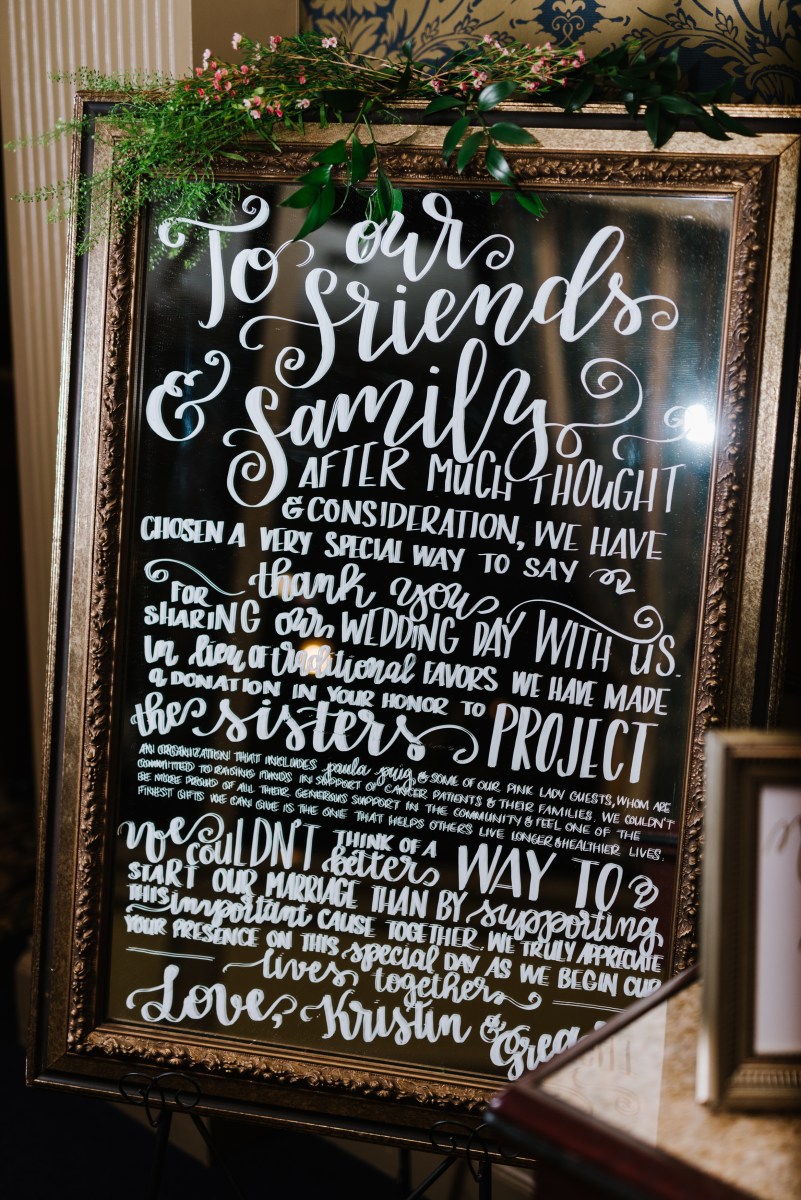 To our
friends
& family
AFTER MUCH THOUGHT
& CONSIDERATION, WE HAVE
CHOSEN A VERY SPECIAL WAY TO SAY
thank you
FOR
SHARING our WEDDING DAY WITH US.
In lieu of traditional FAVORS WE HAVE MADE
a DONATION IN YOUR HONOR TO
the sisters PROJECT
AN ORGANIZATION THAT INCLUDES paula puig & SOME OF OUR PINK LADY GUESTS, WHOM ARE
COMMITTED TO RAISING FUNDS IN SUPPORT OF CANCER PATIENTS & THEIR FAMILIES. WE COULDN'T
BE MORE PROUD OF ALL THEIR GENEROUS SUPPORT IN THE COMMUNITY & FEEL ONE OF THE
FINEST GIFTS WE CAN GIVE IS THE ONE THAT HELPS OTHERS LIVE LONGER & HEALTHIER LIVES.
We COULDN'T THINK OF A
better WAY TO
START OUR MARRIAGE THAN BY supporting
THIS important CAUSE TOGETHER. WE TRULY APPRECIATE
YOUR PRESENCE ON THIS special DAY AS WE BEGIN OUR
lives together
Love, Kristin & Greg